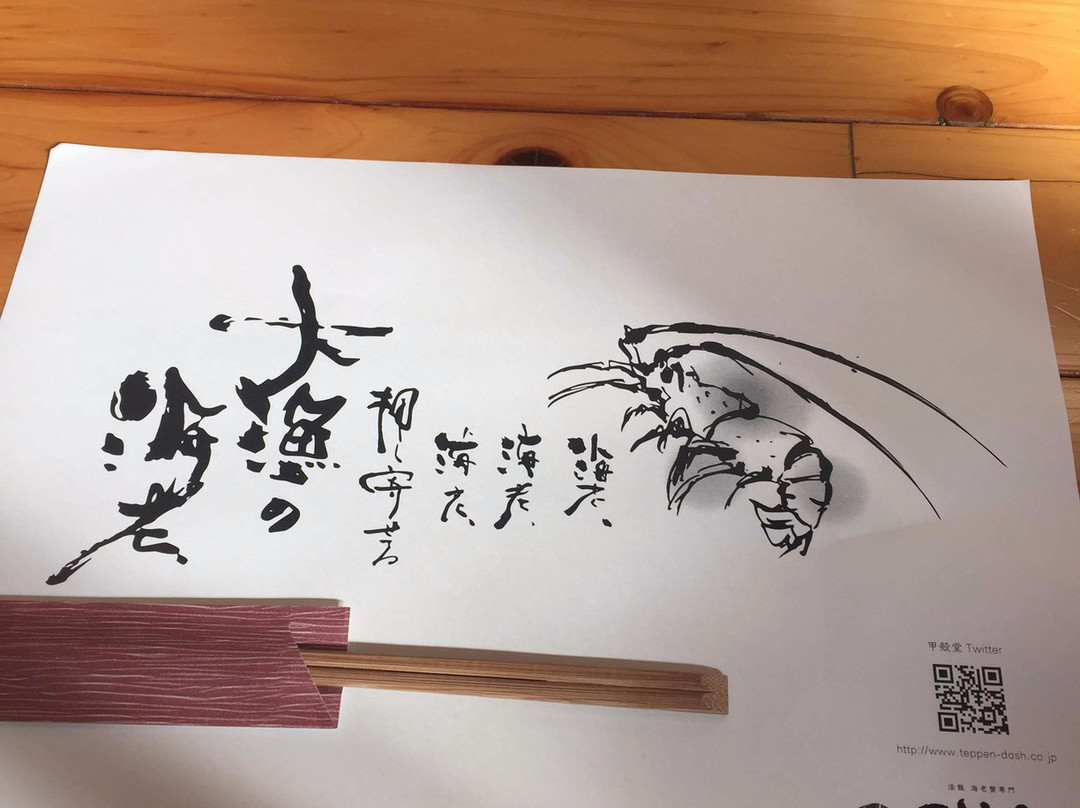 海老、
海老、
海老、
押し寄せる
大漁の
海老
甲殻堂 Twitter
http://www.teppen-dash.co.jp
活龍 海老蟹専門